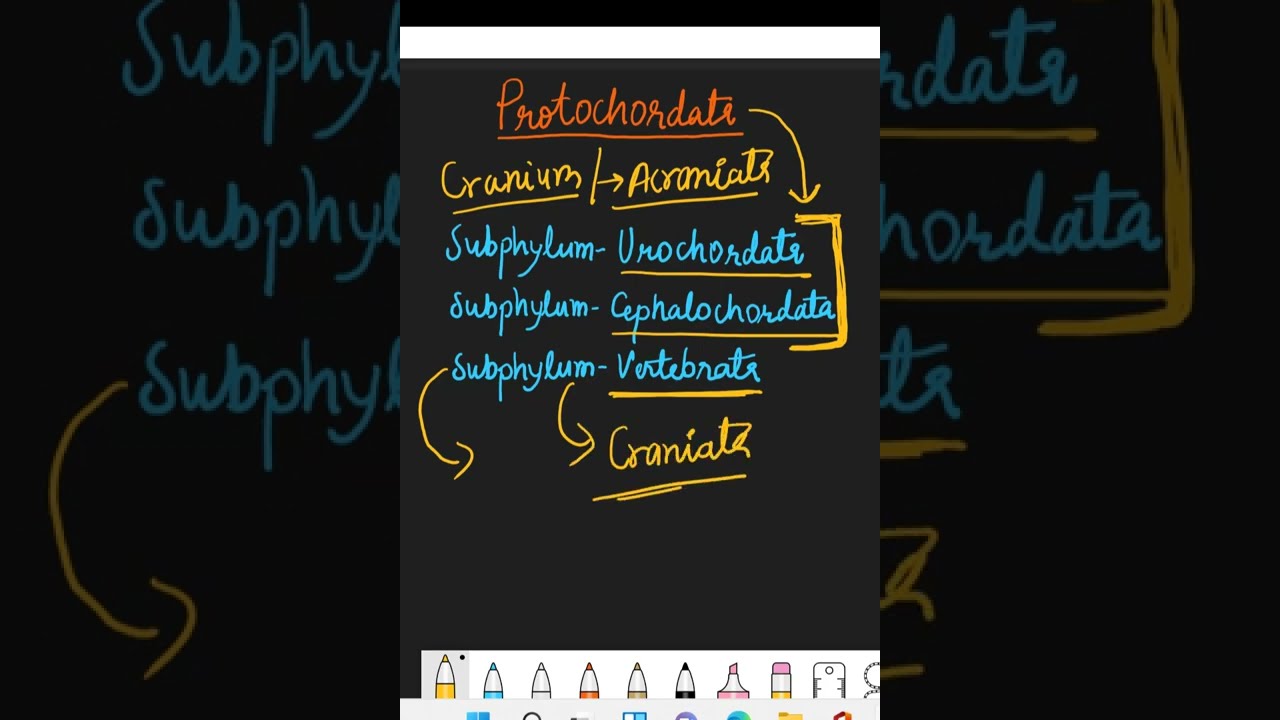 Protochordata
Cranium | → Acraniata
Subphylum - Urochordata
Subphylum - Cephalochordata
Subphylum - Vertebrata
Craniata